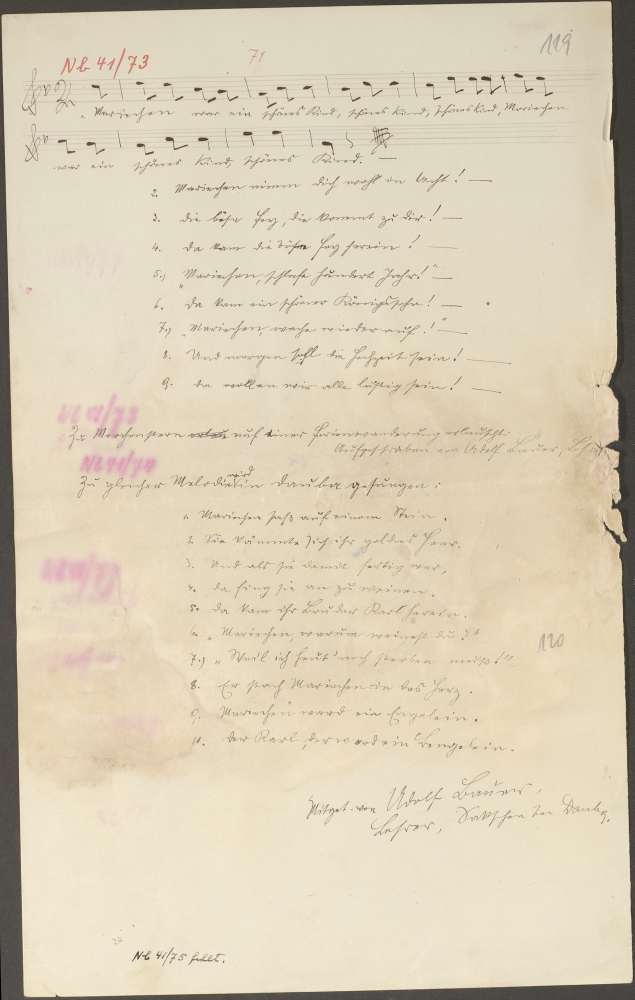 Nb 41/73
71
119
1. Mariechen war ein schönes Kind, schönes Kind, schönes Kind, Mariechen
war ein schönes Kind, schönes Kind. —
2. Mariechen nimm dich wohl in Acht! —
3. Die böse Fee, die kommt zu dir! —
4. Da kam die böse Fee herein! —
5.) „Mariechen, schlafe hundert Jahr!“ —
6. Da kam ein schöner Königssohn! —
7.) „Mariechen, wache wieder auf!“ —
8. Und morgen soll die Hochzeit sein! —
9. Da wollen wir alle lustig sein! —
Zu Morchenstern auf einer Ferienwanderung erlauscht.
Aufgeschrieben von Adolf Bauer,
Zu gleicher Melodie wird in Dauba gesungen:
1. Mariechen saß auf einem Stein.
2. Sie kämmte sich ihr goldnes Haar.
3. Und als sie damit fertig war,
4. da fing sie an zu weinen.
5. Da kam ihr Bruder Karl herein.
6. „Mariechen, warum weinest du?“
7.) „Weil ich heut' noch sterben muß!“
8. Er stach Mariechen in das Herz.
9. Mariechen ward ein Engelein.
10. Der Karl, der ward ein Bengelein.
120
Mitget. von Adolf Bauer,
Lehrer, bei Dauba.
Nb 41/75 fehlt.